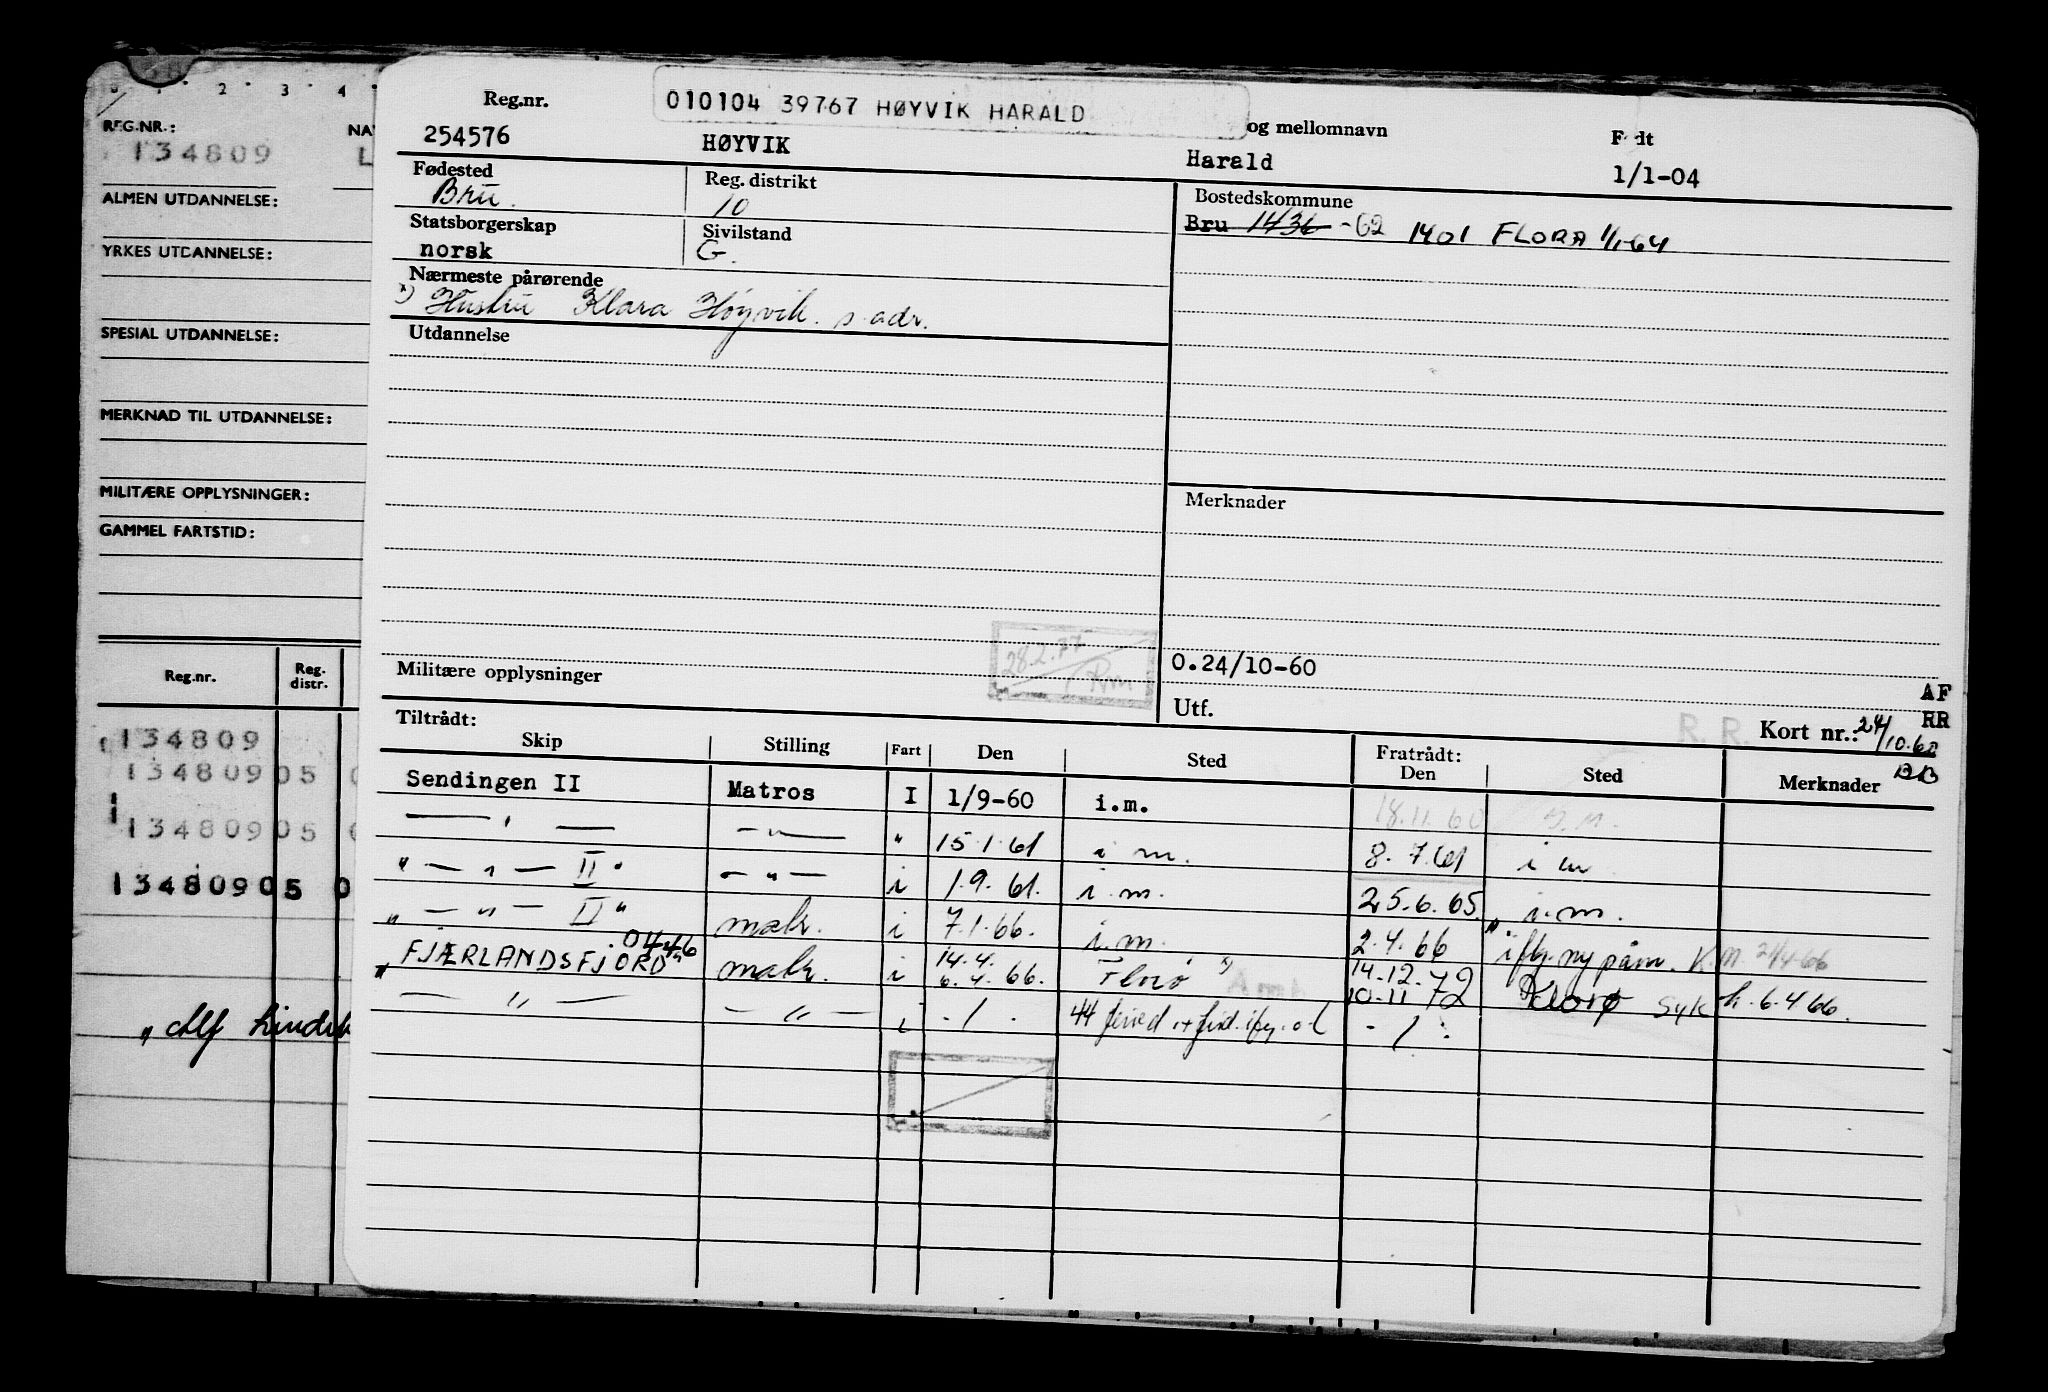 1 2 3 4
REG.NR.: NA
134809 L
ALMEN UTDANNELSE:
YRKES UTDANNELSE:
SPESIAL UTDANNELSE:
MERKNAD TIL UTDANNELSE:
MILITÆRE OPPLYSNINGER:
GAMMEL FARTSTID:
Reg.nr. Reg. distr.
134809
13480905 0
13480905 0
13480905 0
" Alf
Reg.nr. 010104 39767 HØYVIK HARALD og mellomnavn Født
254576 HØYVIK Harald 1/1-04
Fødested Reg. distrikt Bostedskommune
Bru. 10 Bru 1436 -62 1401 FLORA 1/1-64
Statsborgerskap Sivilstand
norsk G.
Nærmeste pårørende
x) Hustru Klara Høyvik. s. adr.
Utdannelse
Merknader
28.2.77
Militære opplysninger O.24/10-60
AF
Utf. R. R. Kort nr.: 24/10.60 RR
BB
Tiltrådt: Fratrådt:
Skip Stilling Fart Den Sted Den Sted Merknader
Sendingen II Matros I 1/9-60 i.m. 18.11.60
— " — — " — " 15.1.61 i m. 8.7.61 i m
" — " — II " — " — i 1.9.61. i.m. 25.6.65. " i.m.
" — " — II " matr. i 7.1.66. i.m. 2.4.66 " K.M. 21/4-66
" FJÆRLANDSFJORD" 0446 matr. i 14.4. 6.4.66. Florø x) 14.12.72 10.11 72 Florø syk h. 6.4 66.
— " — — " — i - / - 44 - / -